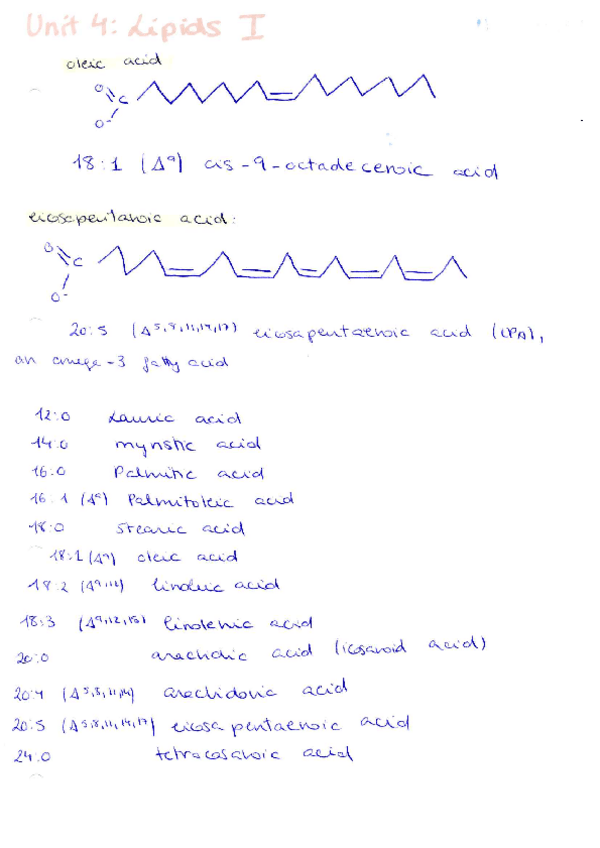 Unit 4: Lipids I
oleic acid
O
C
O-
18:1 (Δ9) cis-9-octadecenoic acid
eicosapentanoic acid:
O
C
O-
20:5 (Δ5,8,11,14,17) eicosapentaenoic acid (EPA),
an omega-3 fatty acid
12:0 Lauric acid
14:0 myristic acid
16:0 Palmitic acid
16:1 (Δ9) Palmitoleic acid
18:0 Stearic acid
18:1 (Δ9) oleic acid
18:2 (Δ9,12) linoleic acid
18:3 (Δ9,12,15) linolenic acid
20:0 arachdic acid (icosanoid acid)
20:4 (Δ5,8,11,14) arachidonic acid
20:5 (Δ5,8,11,14,17) eicosapentaenoic acid
24:0 tetracosanoic acid